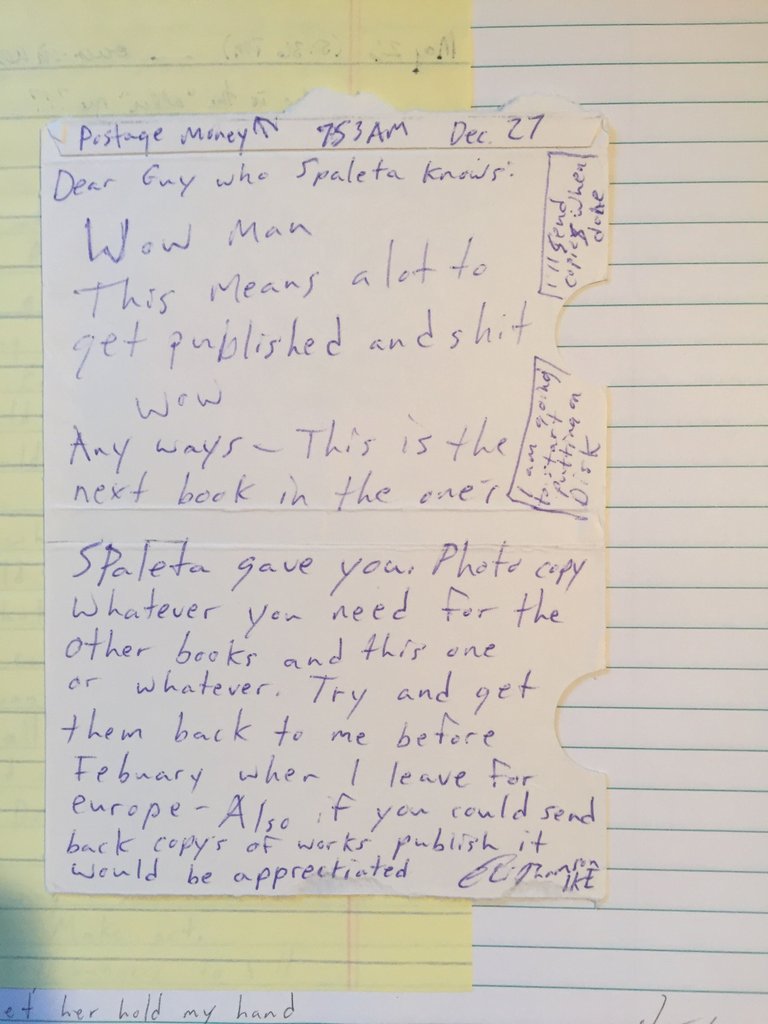 Postage Money 753 AM Dec. 27
Dear Guy who Spaleta knows:
Wow Man
This means a lot to
get published and shit
wow
Any ways – This is the
next book in the one's
I'll send
copies when
done
I am going
to start
putting on
Disk
SPaleta gave you. Photo copy
whatever you need for the
other books and this one
or whatever. Try and get
them back to me before
Febuary when I leave for
europe – Also if you could send
back copy's of works publish it
would be apprectiated
et her hold my hand